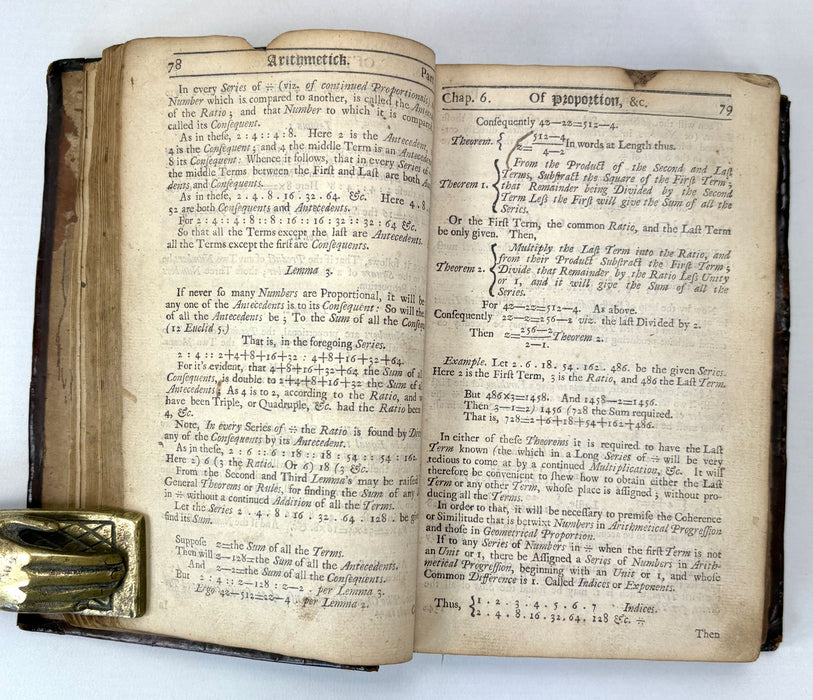 78 Arithmetick. Part
In every Series of ∺ (viz. of continued Proportionals)
Number which is compared to another, is called the
of the Ratio; and that Number to which it is compared
called its Consequent.
As in these, 2 : 4 :: 4 : 8. Here 2 is the Antecedent,
4 is the Consequent; and 4 the middle Term is an
8 its Consequent: Whence it follows, that in every Series of
the middle Terms between the First and Last are both
dents and Consequents.
As in these, 2 . 4 . 8 . 16 . 32 . 64. &c. Here 4 . 8 .
32 are both Consequents and Antecedents.
For 2 : 4 :: 4 : 8 :: 8 : 16 :: 16 : 32 :: 32 : 64 &c.
So that all the Terms except the last are Antecedents.
all the Terms except the first are Consequents.
Lemma 3.
If never so many Numbers are Proportional, it will be
any one of the Antecedents is to its Consequent: So will the
of all the Antecedents be; To the Sum of all the
(12 Euclid 5.)
That is, in the foregoing Series.
2 : 4 :: 2+4+8+16+32 : 4+8+16+32+64.
For it's evident, that 4+8+16+32+64 the Sum of
Consequents, is double to 2+4+8+16+32 the Sum of
Antecedents; As 4 is to 2, according to the Ratio, and
have been Triple, or Quadruple, &c. had the Ratio been
4, &c.
Note, In every Series of ∺ the Ratio is found by
any of the Consequents by its Antecedent.
As in these, 2 : 6 :: 6 : 18 :: 18 : 54 :: 54 : 162
Here 2) 6 (3 the Ratio. Or 6) 18 (3 &c.
From the Second and Third Lemma's may be raised
General Theorems or Rules, for finding the Sum of any
in ∺ without a continued Addition of all the Terms.
Let the Series 2 . 4 . 8 . 16 . 32 . 64 . 128 . be
find its Sum.
Suppose z=the Sum of all the Terms.
Then will z—128=the Sum of all the Antecedents.
And z—2=the Sum of all the Consequents.
But 2 : 4 :: z—128 : z—2 . per Lemma 3.
Ergo 4z—512=2z—4 . per Lemma 2.
Chap. 6. Of Proportion, &c. 79
Consequently 4z—2z=512—4.
Theorem. { z=512—4/4—2 In words at Length thus.
Theorem 1. { From the Product of the Second and Last
Terms, Subſtract the Square of the Firſt Term;
that Remainder being Divided by the Second
Term Leſs the Firſt will give the Sum of all the
Series.
Or the First Term, the common Ratio, and the Last Term
be only given. Then,
Theorem 2. { Multiply the Laſt Term into the Ratio, and
from their Product Subſtract the Firſt Term;
Divide that Remainder by the Ratio Leſs Unity
or 1, and it will give the Sum of all the
Series.
For 4z—2z=512—4. As above.
Consequently 2z—z=256—2 viz. the last Divided by 2.
Then z=256—2/2—1. Theorem 2.
Example. Let 2 . 6 . 18 . 54 . 162 . 486. be the given Series.
Here 2 is the First Term, 3 is the Ratio, and 486 the Last Term.
But 486×3=1458. And 1458—2=1456.
Then 3—1=2) 1456 (728 the Sum required.
That is, 728=2+6+18+54+162+486.
In either of these Theorems it is required to have the Last
Term known (the which in a Long Series of ∺ will be very
tedious to come at by a continued Multiplication, &c. It will
therefore be convenient to shew how to obtain either the Last
Term or any other Term, whose place is assigned; without pro-
ducing all the Terms.
In order to that, it will be necessary to premise the Coherence
or Similitude that is betwixt Numbers in Arithmetical Progression
and those in Geometrical Proportion.
If to any Series of Numbers in ∺ when the first Term is not
an Unit or 1, there be Assigned a Series of Numbers in Arith-
metical Progression, beginning with an Unit or 1, and whose
Common Difference is 1. Called Indices or Exponents.
Thus, { 1 . 2 . 3 . 4 . 5 . 6 . 7 Indices.
2 . 4 . 8 . 16 . 32 . 64 . 128 &c. ∺
Then